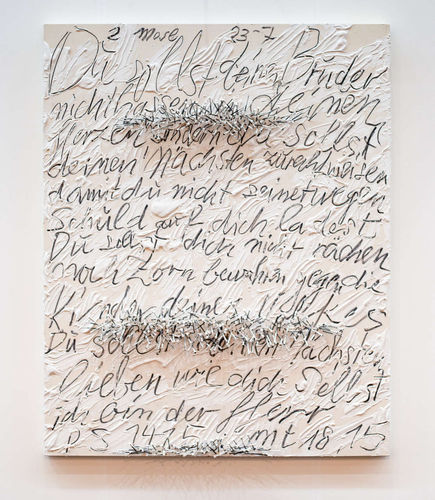 2 Mose 23-7
Du sollst deinen Bruder
nicht hassen deinen
Herzen sondern du sollst
deinen Nächsten zurechtweisen
damit du nicht seinetwegen
Schuld auf dich ladest
Du sollst dich nicht rächen
noch Zorn bewahren gegen die
Kinder deines Volkes
Du sollst deinen Nächsten
lieben wie dich selbst
ich bin der Herr
PS 14.15 mt 18.15